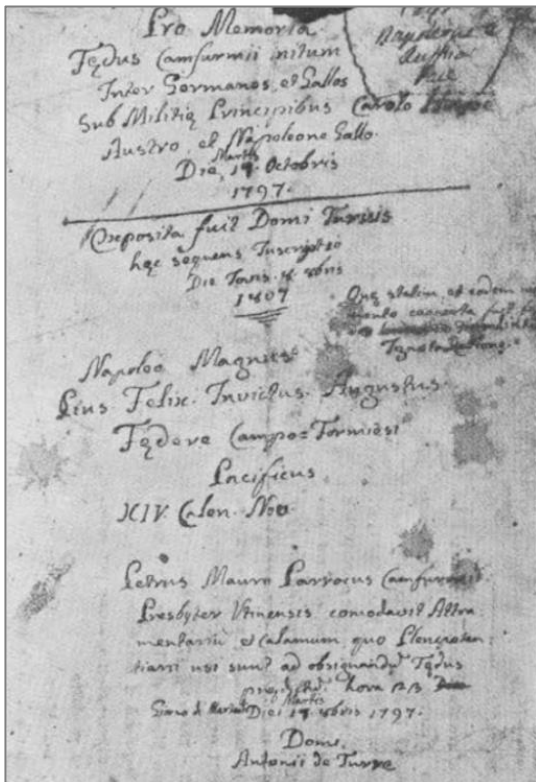 Pro Memoria
Fędus Camfurmii initum
Inter Germanos, et Gallos
Sub Militię Principibus Carolo
Austro, et Napoleone Gallo.
Martis
Die, 17. Octobris
1797.
Napoleone
Russia
Pace
Opposita fuit Domi Turris
hęc sequens Inscriptio
Die Jovis 8bris
1807
Quę statim, et eodem
mento cancerata fuit
Napoleo Magnus
Pius. Felix. Invictus. Augustus.
Fędere Campo=Formiesi
Pacificus
XIV. Calen. Nov.
Petrus Mauro Parrocus Camfurmii
Presbyter Utinensis comodavit Attra
mentariũ et Calamum quo Plenipoten
tiarii usi sunt ad obsignandũ Fędus
hora
Martis
Die 17. 8bris 1797.
Domi
Antonii de Turre